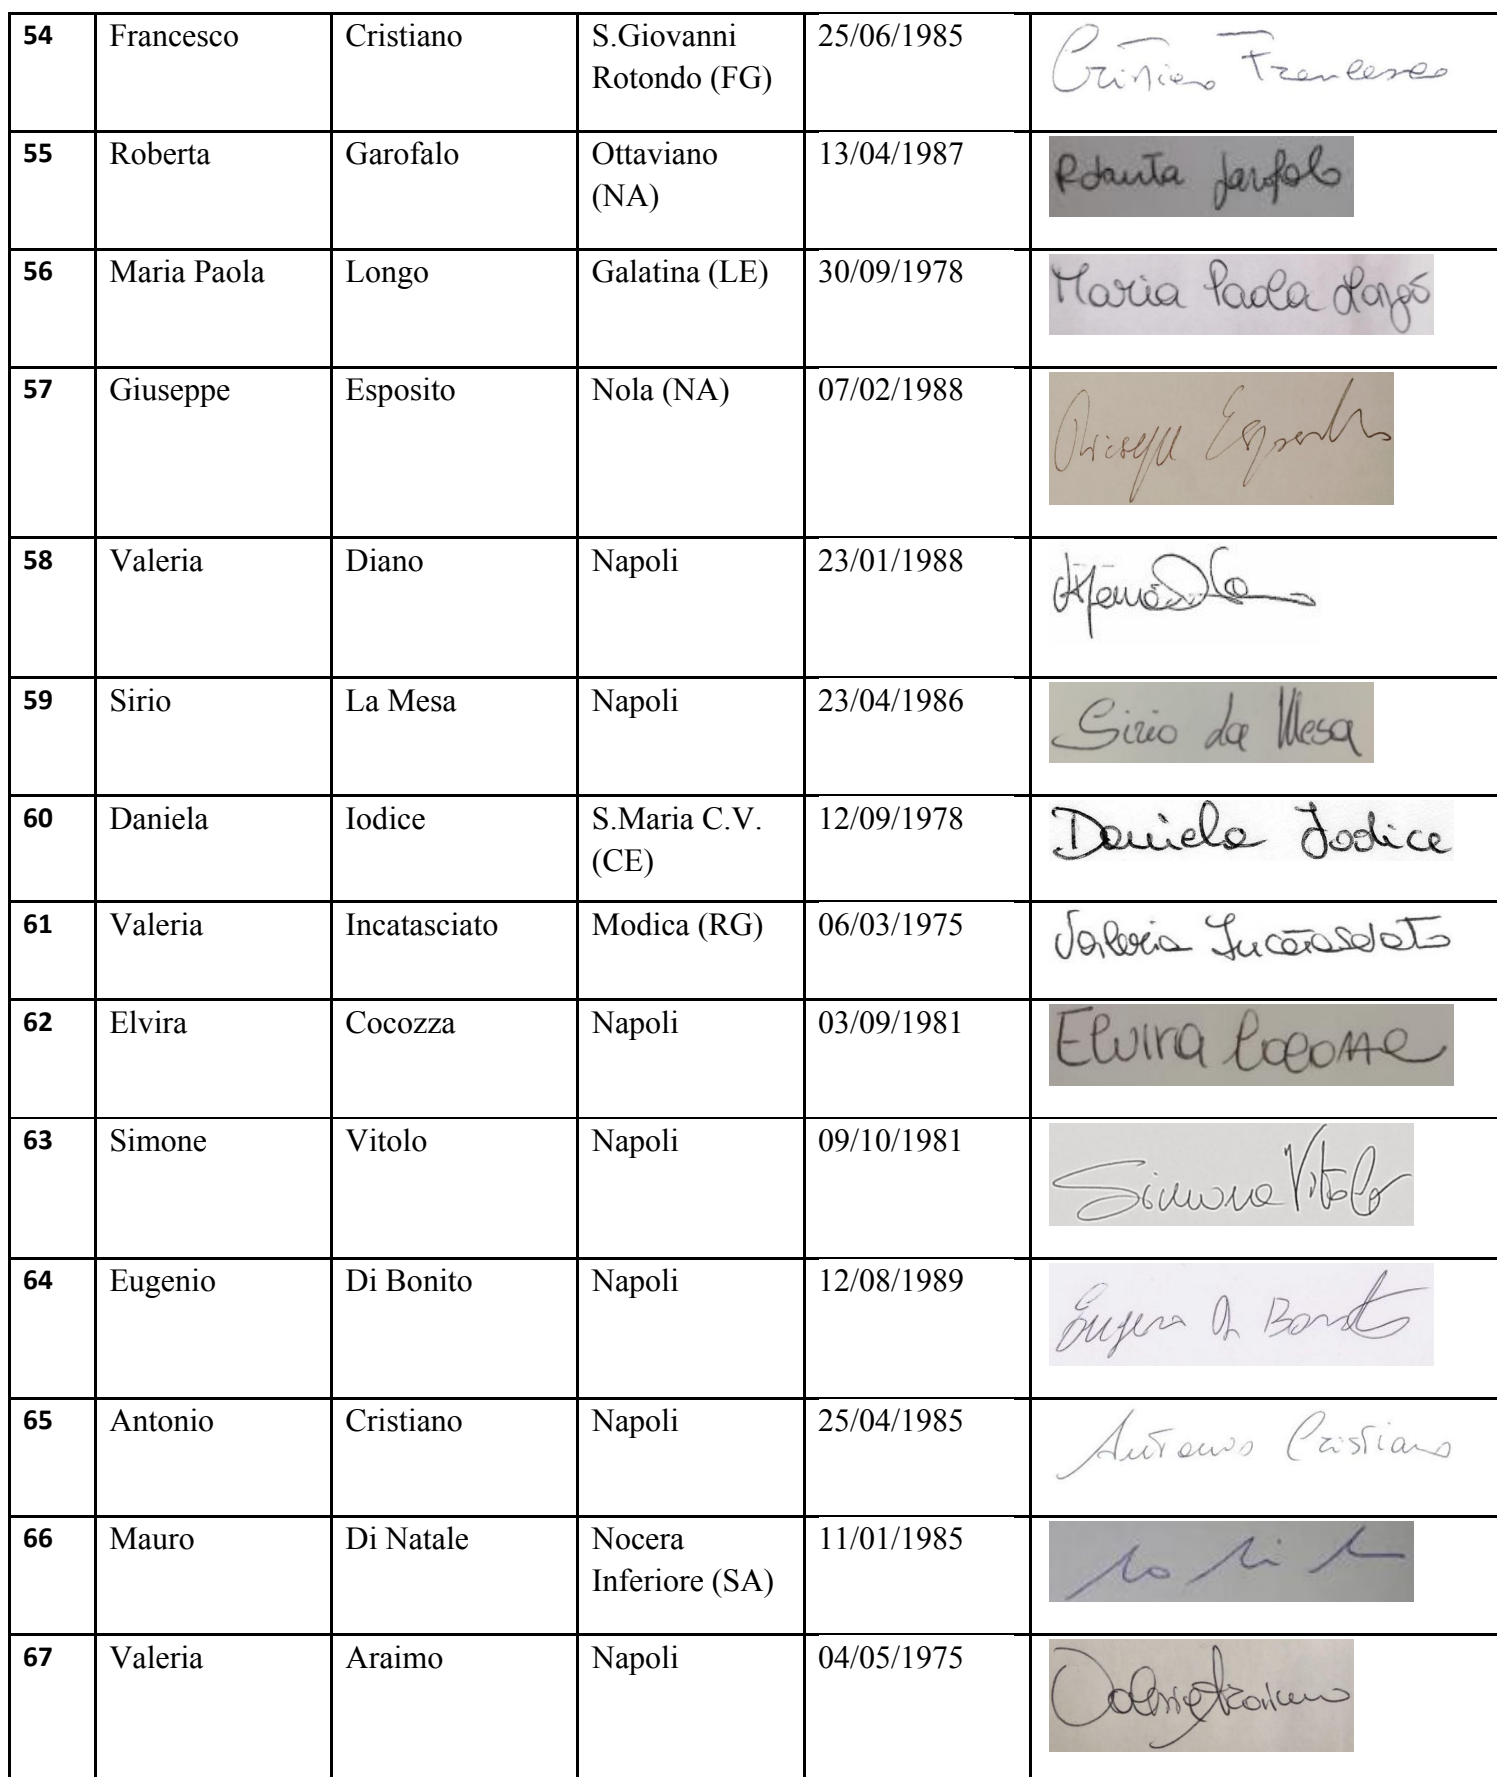 54 Francesco Cristiano S.Giovanni 25/06/1985 Cristiano Francesco
Rotondo (FG)
55 Roberta Garofalo Ottaviano 13/04/1987 Roberta Garofalo
(NA)
56 Maria Paola Longo Galatina (LE) 30/09/1978 Maria Paola Longo
57 Giuseppe Esposito Nola (NA) 07/02/1988 Giuseppe Esposito
58 Valeria Diano Napoli 23/01/1988
59 Sirio La Mesa Napoli 23/04/1986 Sirio La Mesa
60 Daniela Iodice S.Maria C.V. 12/09/1978 Daniela Iodice
(CE)
61 Valeria Incatasciato Modica (RG) 06/03/1975 Valeria Incatasciato
62 Elvira Cocozza Napoli 03/09/1981 Elvira Cocozza
63 Simone Vitolo Napoli 09/10/1981 Simone Vitolo
64 Eugenio Di Bonito Napoli 12/08/1989 Eugenio Di Bonito
65 Antonio Cristiano Napoli 25/04/1985 Antonio Cristiano
66 Mauro Di Natale Nocera 11/01/1985
Inferiore (SA)
67 Valeria Araimo Napoli 04/05/1975 Valeria Araimo